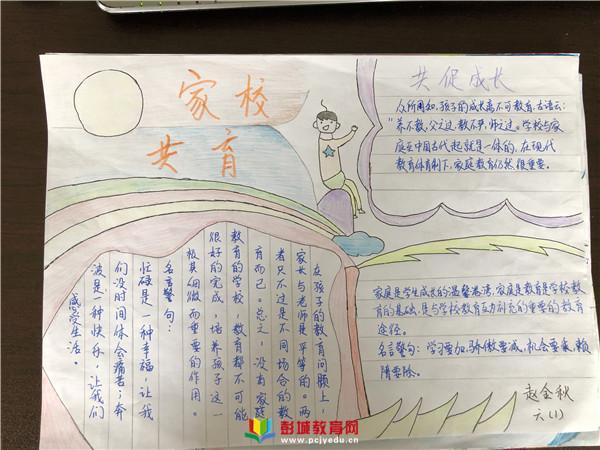 家校
共育
共促成长
众所周知,孩子的成长离不可教育,古语云:
"养不教,父之过,教不严,师之过。学校与家
庭在中国古代起就是一体的,在现代
教育体育制下,家庭教育仍然很重要。
家庭是学生成长的温馨港湾,家庭是教育是学校教
育的基础,是与学校教育互为补充的重要的教育
途径。
名言警句:学习要加,骄傲要减,机会要乘,懒
惰要除。
赵金秋
六(1)
在孩子的教育问题上,
家长与老师是平等的。两
者只不过是不同场合的教
育而已。总之,没有家庭
教育的学校教育都不可能
很好的完成,培养孩子这一
极其细微而重要的作用。
名言警句:
忙碌是一种幸福,让我
们没时间体会痛苦;奔
波是一种快乐,让我们
感受生活。
彭城教育网
www.pcjyedu.cn